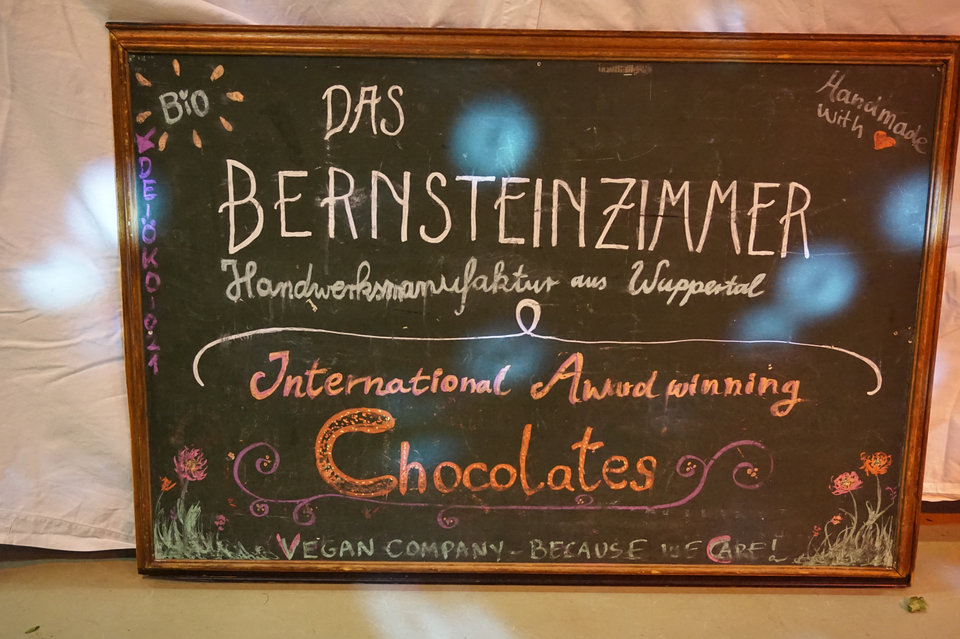 BiO
Handmade
with
DAS
BERNSTEINZIMMER
Handwerksmanufaktur aus Wuppertal
International Award winning
Chocolates
VEGAN COMPANY - BECAUSE WE CARE!